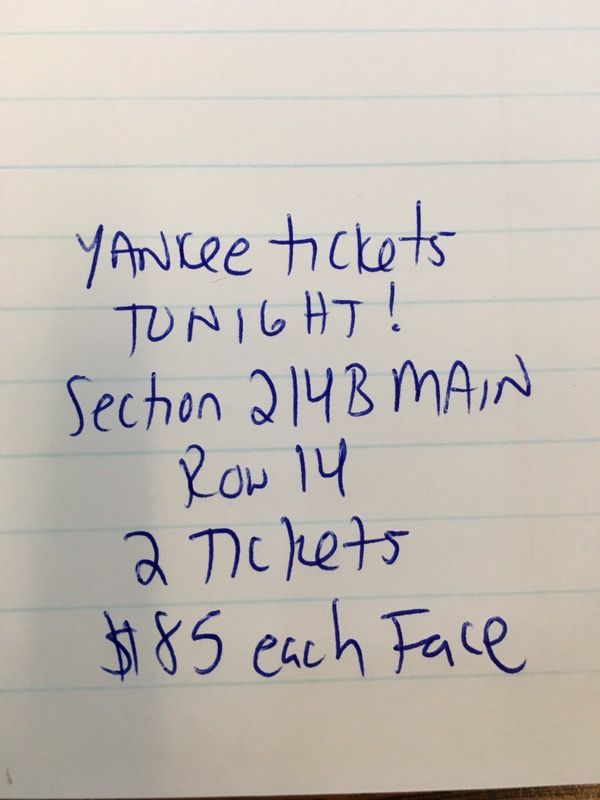 YANKee tickets
TONIGHT!
Section 214B MAIN
Row 14
2 Tickets
$85 each Face